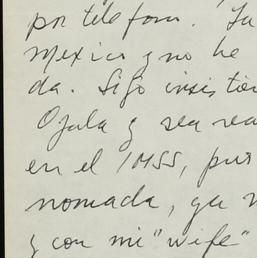 por teléfono. Ya
Mexico y no he
da. Sigo insistien
Ojala y sea rea
en el IMSS, pues
nomada, ya
y con mi "wife"